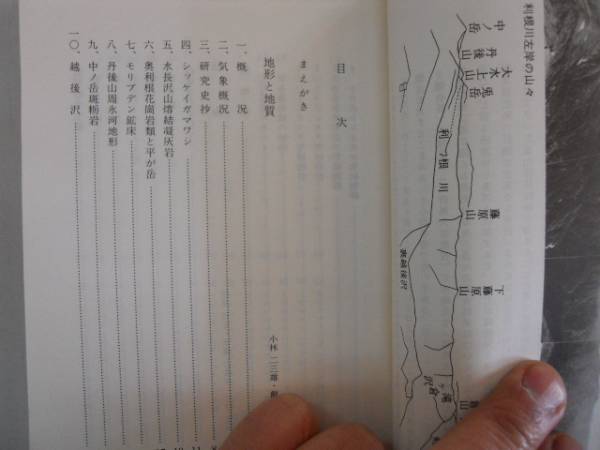 利根川左岸の山々
中ノ岳
丹後山
大水上山
兎岳
利根川
藤原山
裏越後沢
下藤原山
滝ケ倉沢
目次
まえがき
地形と地質
小林 二三雄・
一、概況
二、気象概況
三、研究史抄
四、シッケイガマワシ
五、水長沢山熔結凝灰岩
六、奥利根花崗岩類と平が岳
七、モリブデン鉱床
八、丹後山周氷河地形
九、中ノ岳斑粝岩
一〇、越後沢